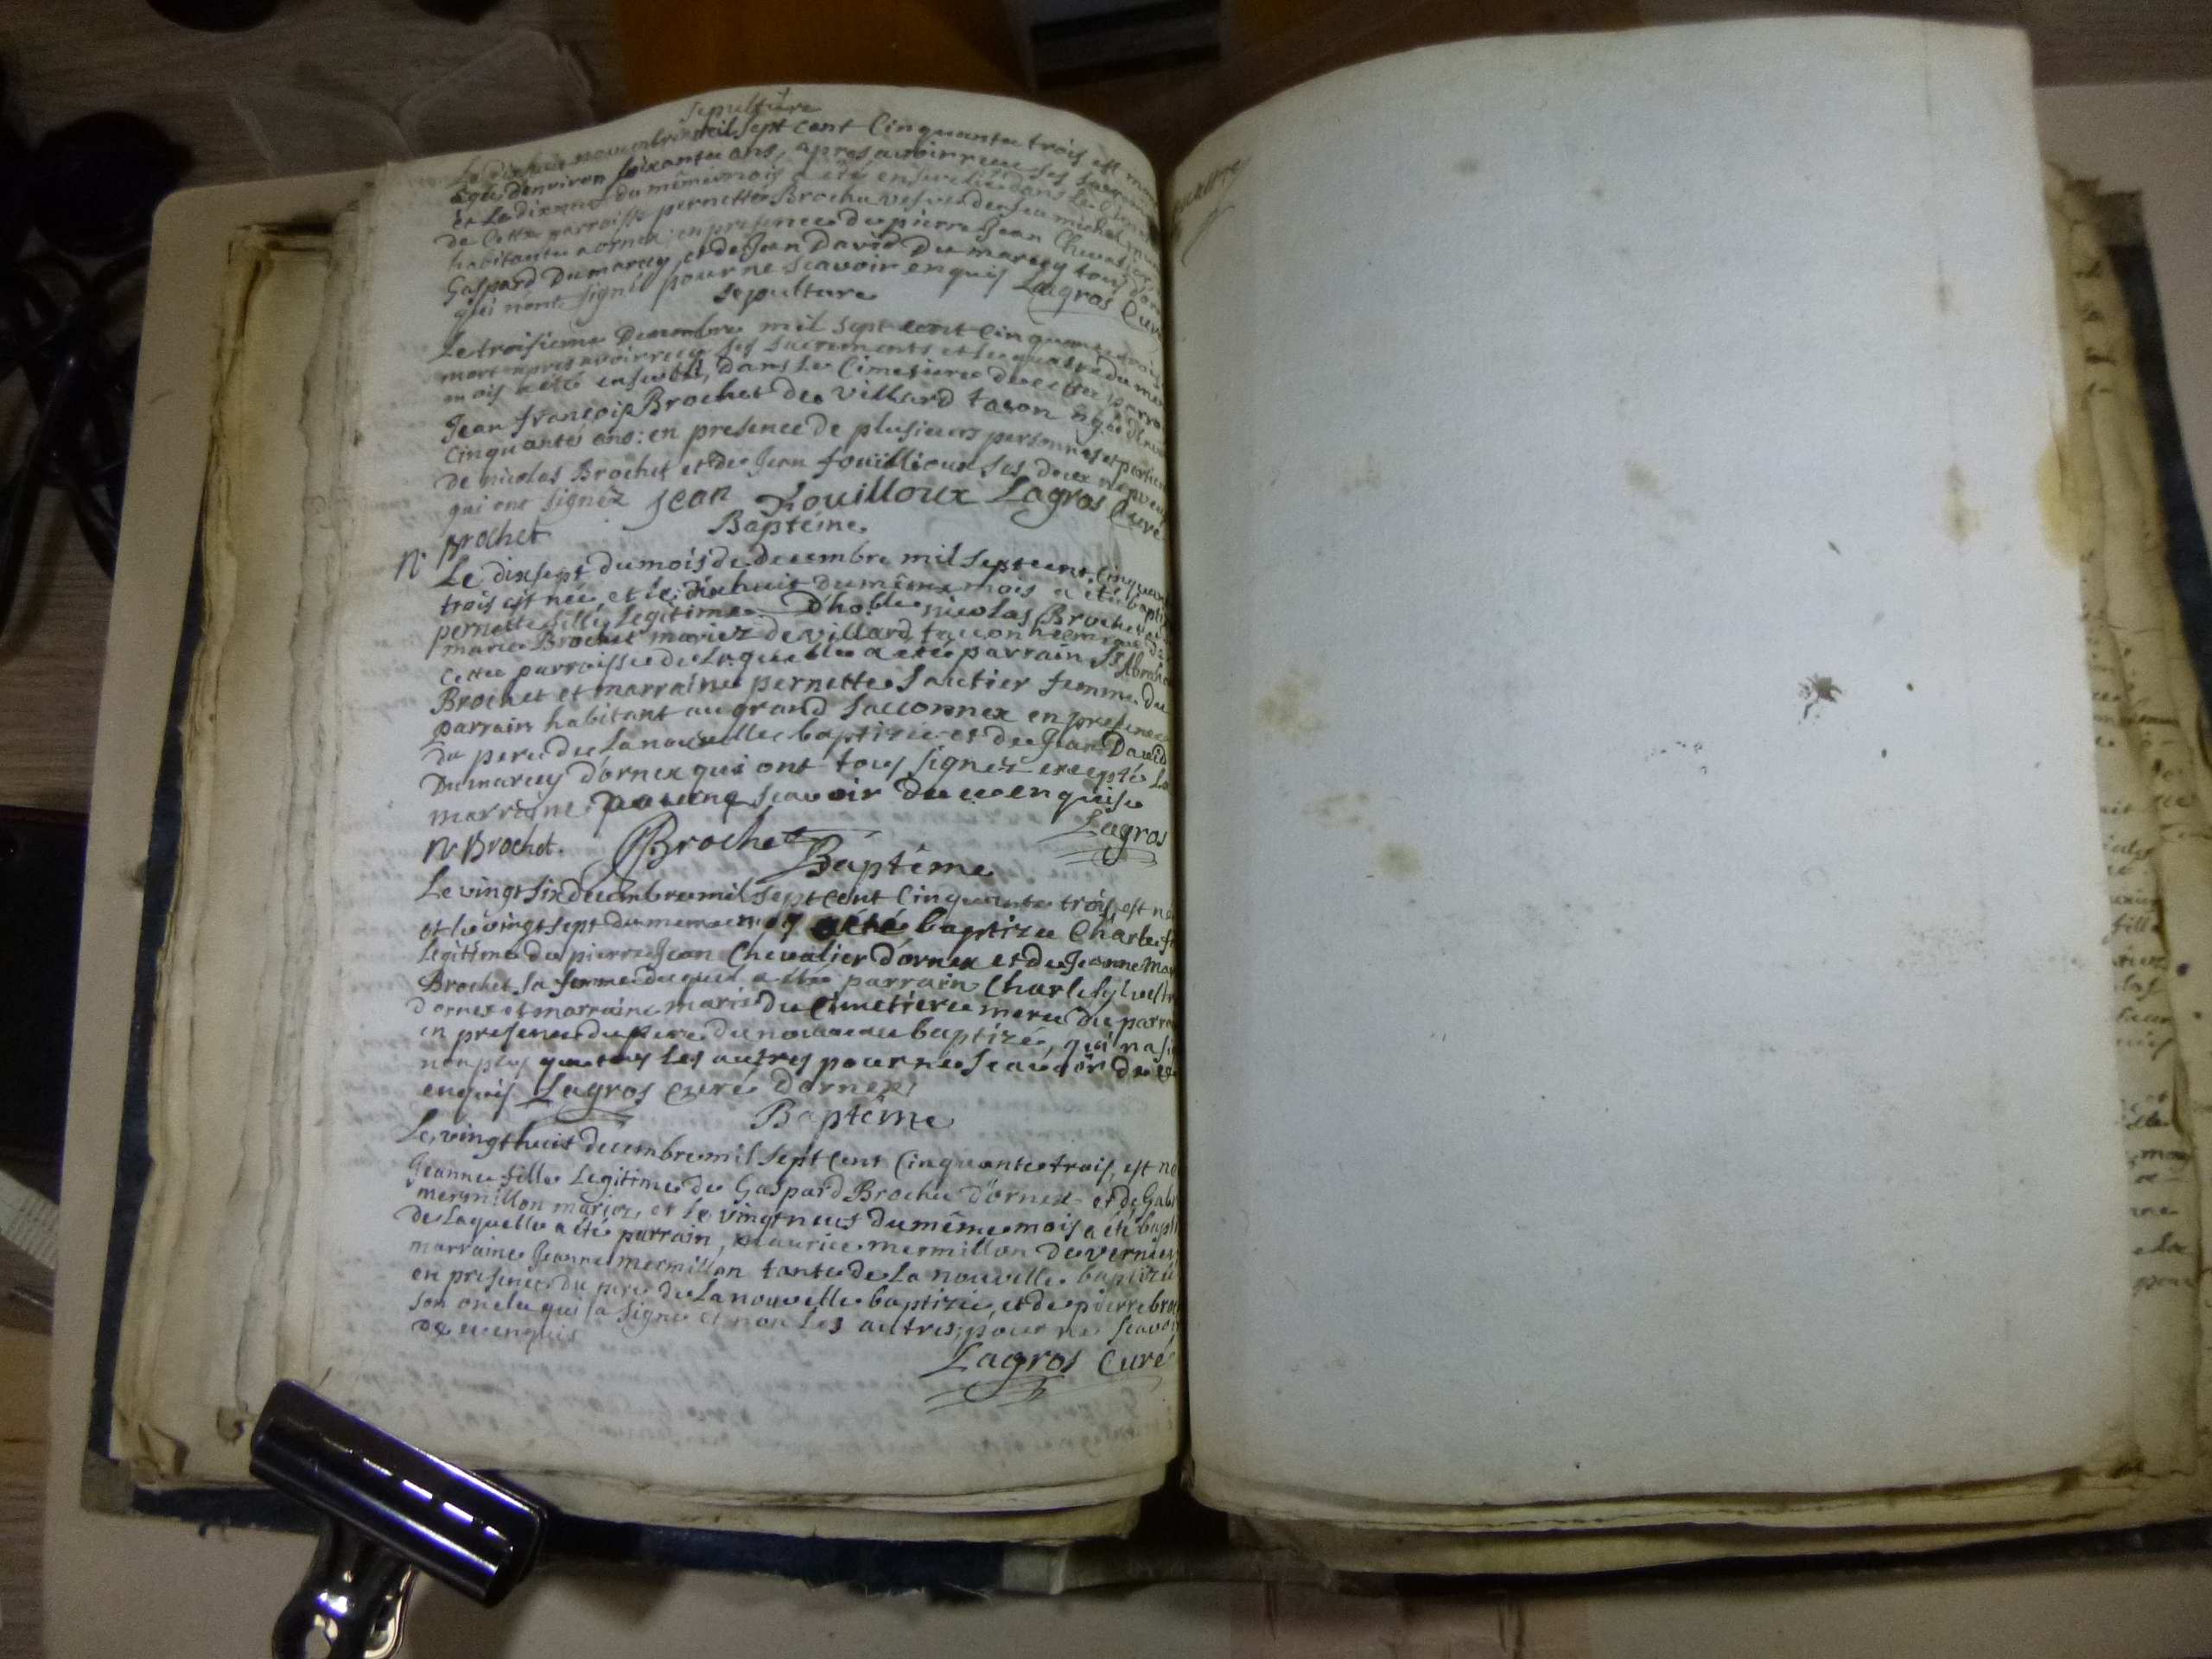 Sepulture
novembre mil sept cent Cinquante trois est
agée d'environ soixante ans, apres avoir receu ses
et le dixneuf du même mois a été ensevelie dans le
de Cette parroisse pernette Brochu vefve de feu michel
habitante a ornex; en presence de pierre Jean Chevalier
Gaspard Dumarcey et de Jean David Du marcey tous
qui n'ont signé pour ne scavoir enquis Lagros Curé
Sepulture
Le troisieme Decembre mil sept cent Cinquante trois
mort apres avoir receu ses sacrements et le quatre du
mois a été enseveli, dans le Cimetiere de cette
Jean françois Brochet de Villard tacon agé
Cinquante ans: en presence de plusieurs personnes et
de nicolas Brochet et de Jean fouillioux ses deux
qui ont signéz Jean Fouilloux Lagros Curé
N. Brochet
Baptéme
Le dixsept du mois de Decembre mil sept cent
trois est née et le dixhuit du même mois a été
pernette fille legitime D'hoble nicolas Brochet
marie Brochet mariez de villard tacon
cette parroisse de Laquelle a été parrain
Brochet et marraine pernette Sautier femme du
parrain habitant au grand Sacconnex en presence
du pere de La nouvelle baptizée et de Jean David
Dumarcey d'ornex qui ont tous signez excepté La
marraine pour ne scavoir de ce enquise
Lagros
N. Brochet. Brochet
Baptême
Le vingt six decembre mil sept cent Cinquante trois, est né
et le vingt sept du meme mois a été baptizé Charle
Legitime de pierre Jean Chevalier d'ornex et de Jeanne
Brochet sa femme duquel a été parrain Charle
d'ornex et marraine marie Du Cimetiere mere du
en presence du pere du nouveau baptizé, qui
non plus que tous les autres pour ne Scavoir de ce
enquis Lagros Curé D'ornex
Baptême
Le, vingt huit decembre mil sept cent Cinquante trois, est
Jeanne fille Legitime de Gaspard Brochu d'ornex et de
mermillon mariez, et le vingt neuf du même mois a été
de Laquelle a été parrain, maurice mermillon de vernier
marraine Jeanne mermillon tante de La nouvelle baptizée
en presence du pere de La nouvelle baptizée, et de pierre
son oncle qui a signé et non Les autres, pour ne Scavoir
de ce enquis
Lagros Curé